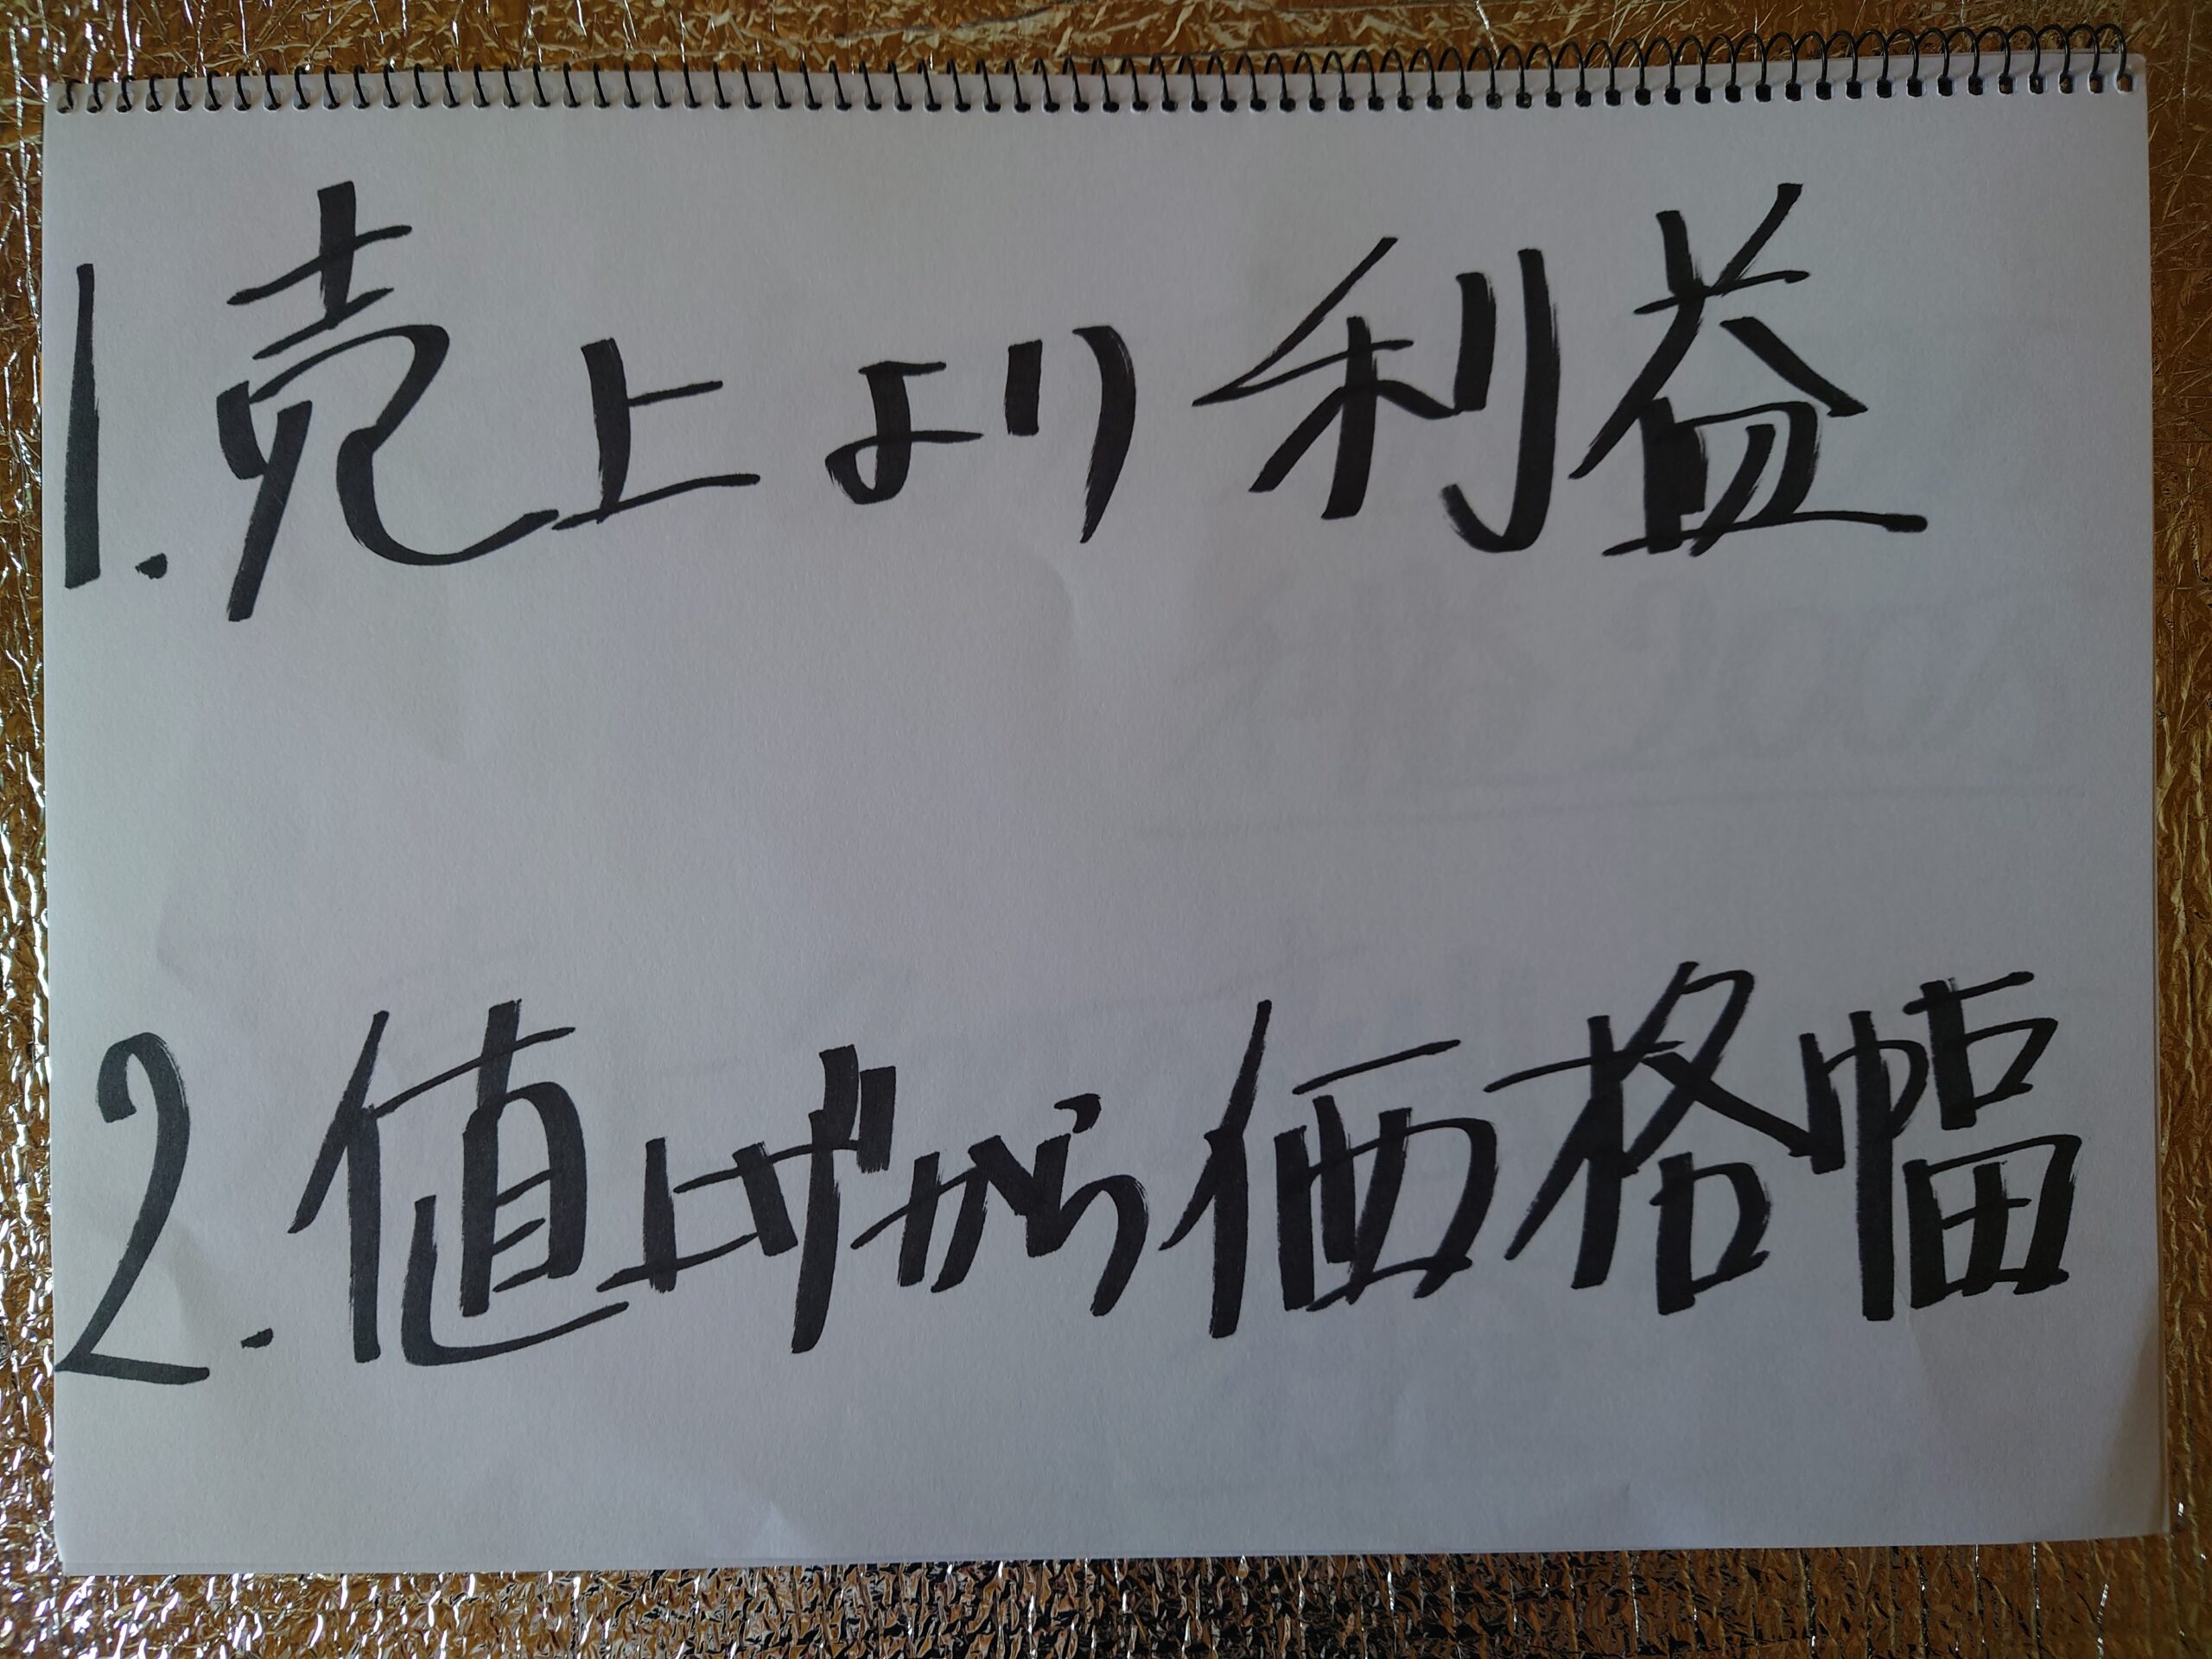 1.売上より利益
2.値上げから価格幅